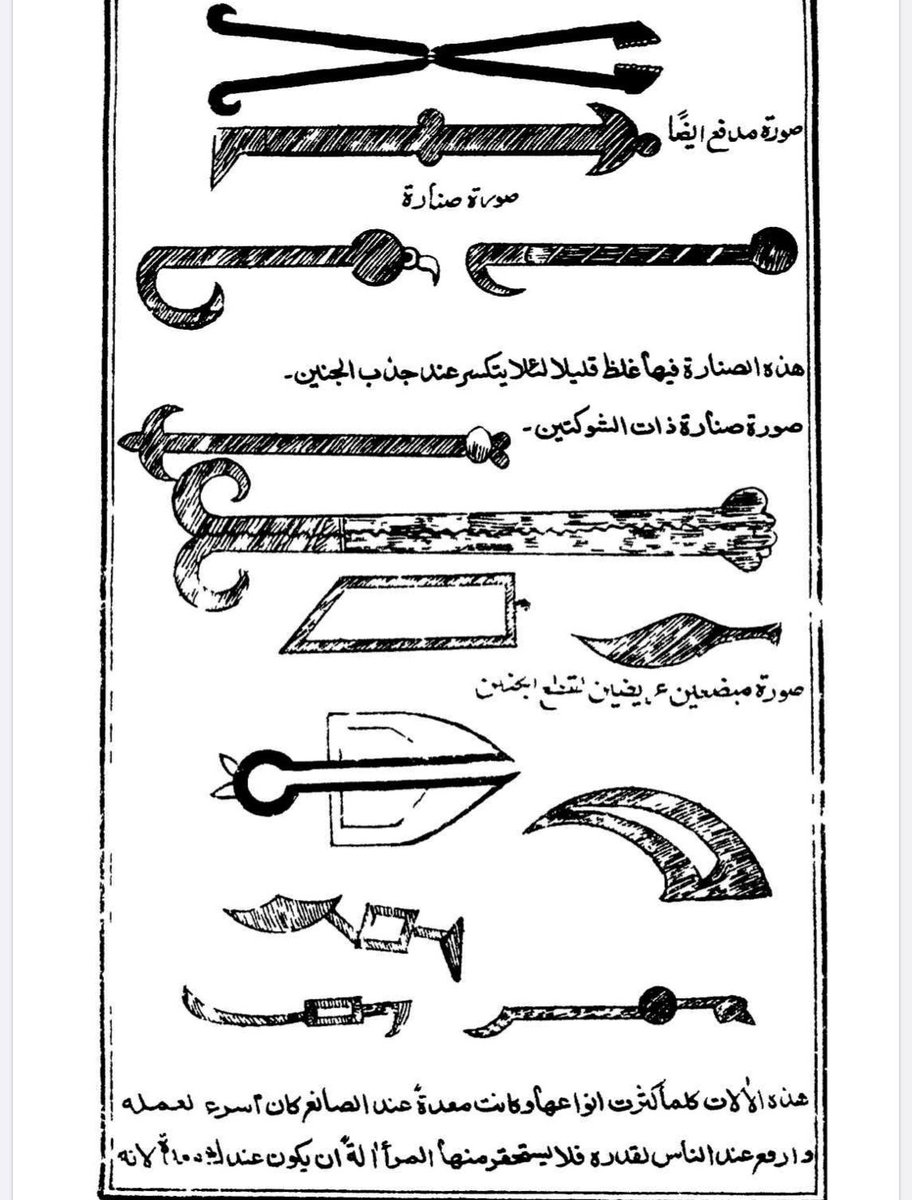 صورة مدفع ايضًا
صورة صنارة
هذه الصنارة فيها غلظ قليلا لئلا يتكسر عند جذب الجنين۔
صورة صنارة ذات الشوكتين۔
صورة مبضعين عريضين لقطع الجنين
هذه الألات كلما أكثرت انواعها وكانت معدةً عند الصانع كان أسرع لعمله
وارفع عند الناس لقدره فلا يستحقر منها المرأ الةً ان يكون عندك لانه